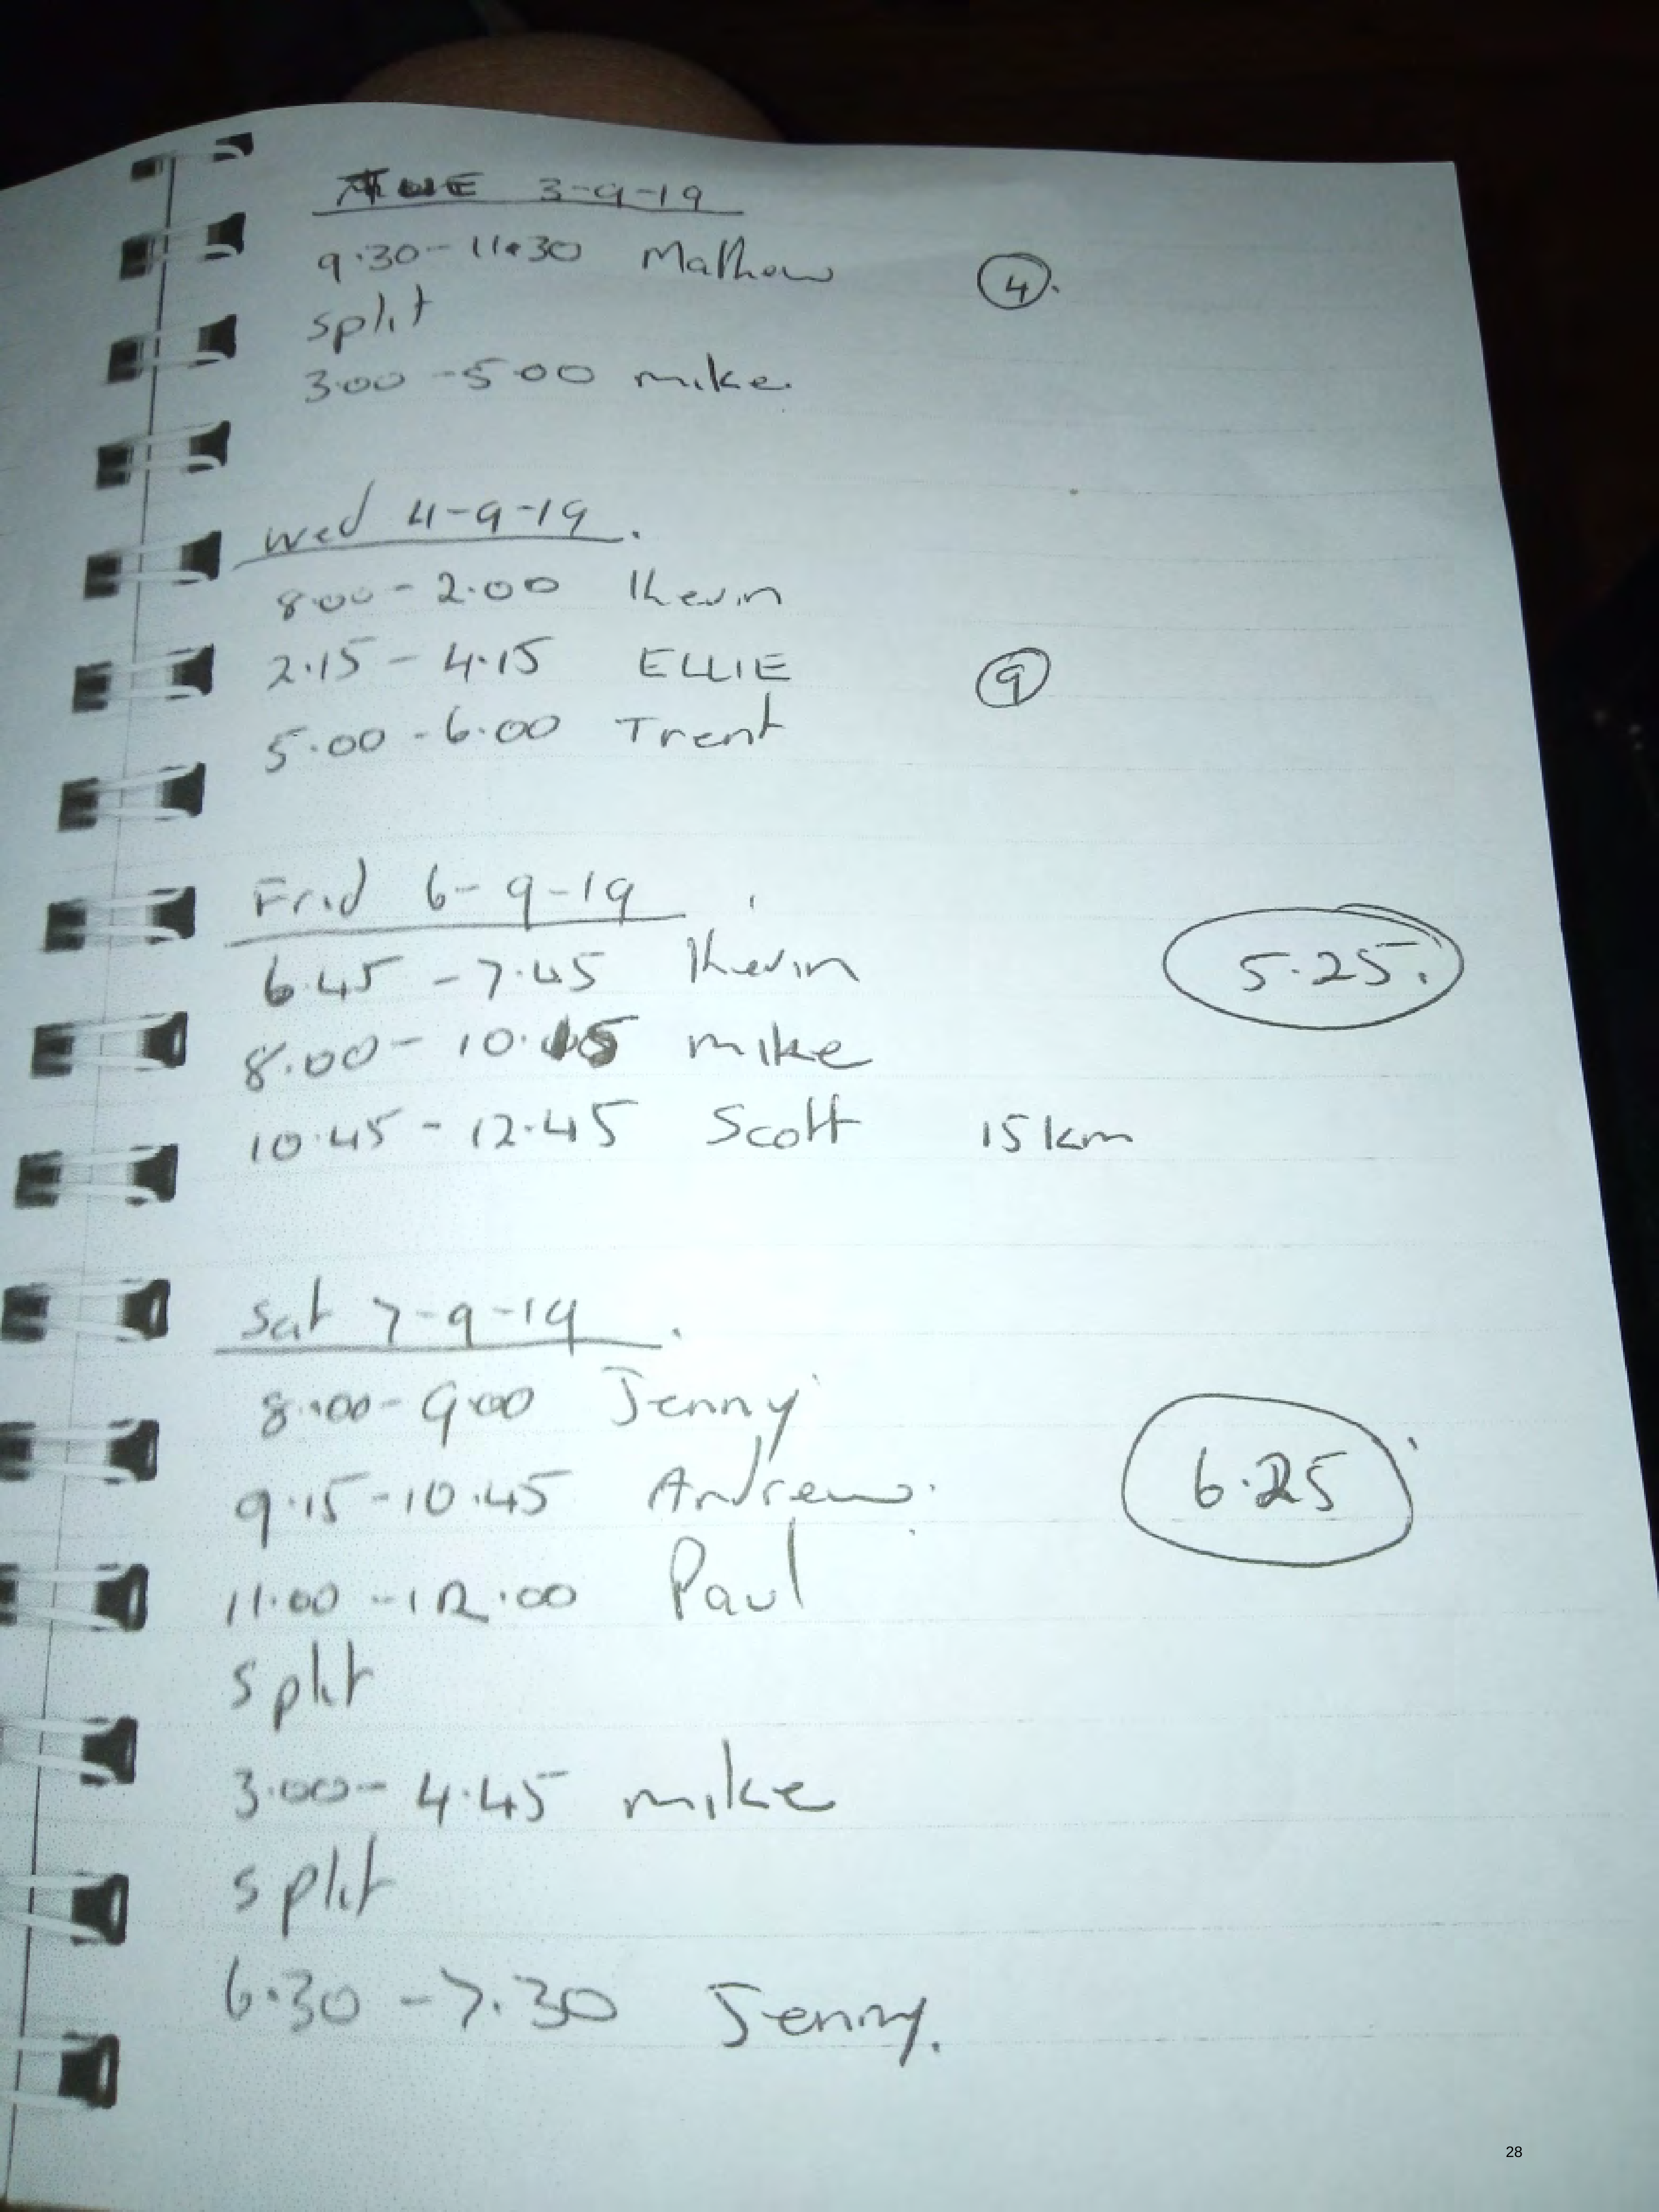 TUE 3-9-19
9.30-11.30 Mathew
4.
split
3.00-5.00 mike.
Wed 4-9-19.
8.00-2.00 Kevin
2.15-4.15 ELLIE
9
5.00-6.00 Trent
Frid 6-9-19
6.45-7.45 Kevin
5.25.
8.00-10.15 mike
10.45-12.45 Scott 15km
Sat 7-9-19.
8.00-9.00 Jenny
9.15-10.45 Andrew.
6.25
11.00-12.00 Paul
split
3.00-4.45 mike
split
6.30-7.30 Jenny.
28